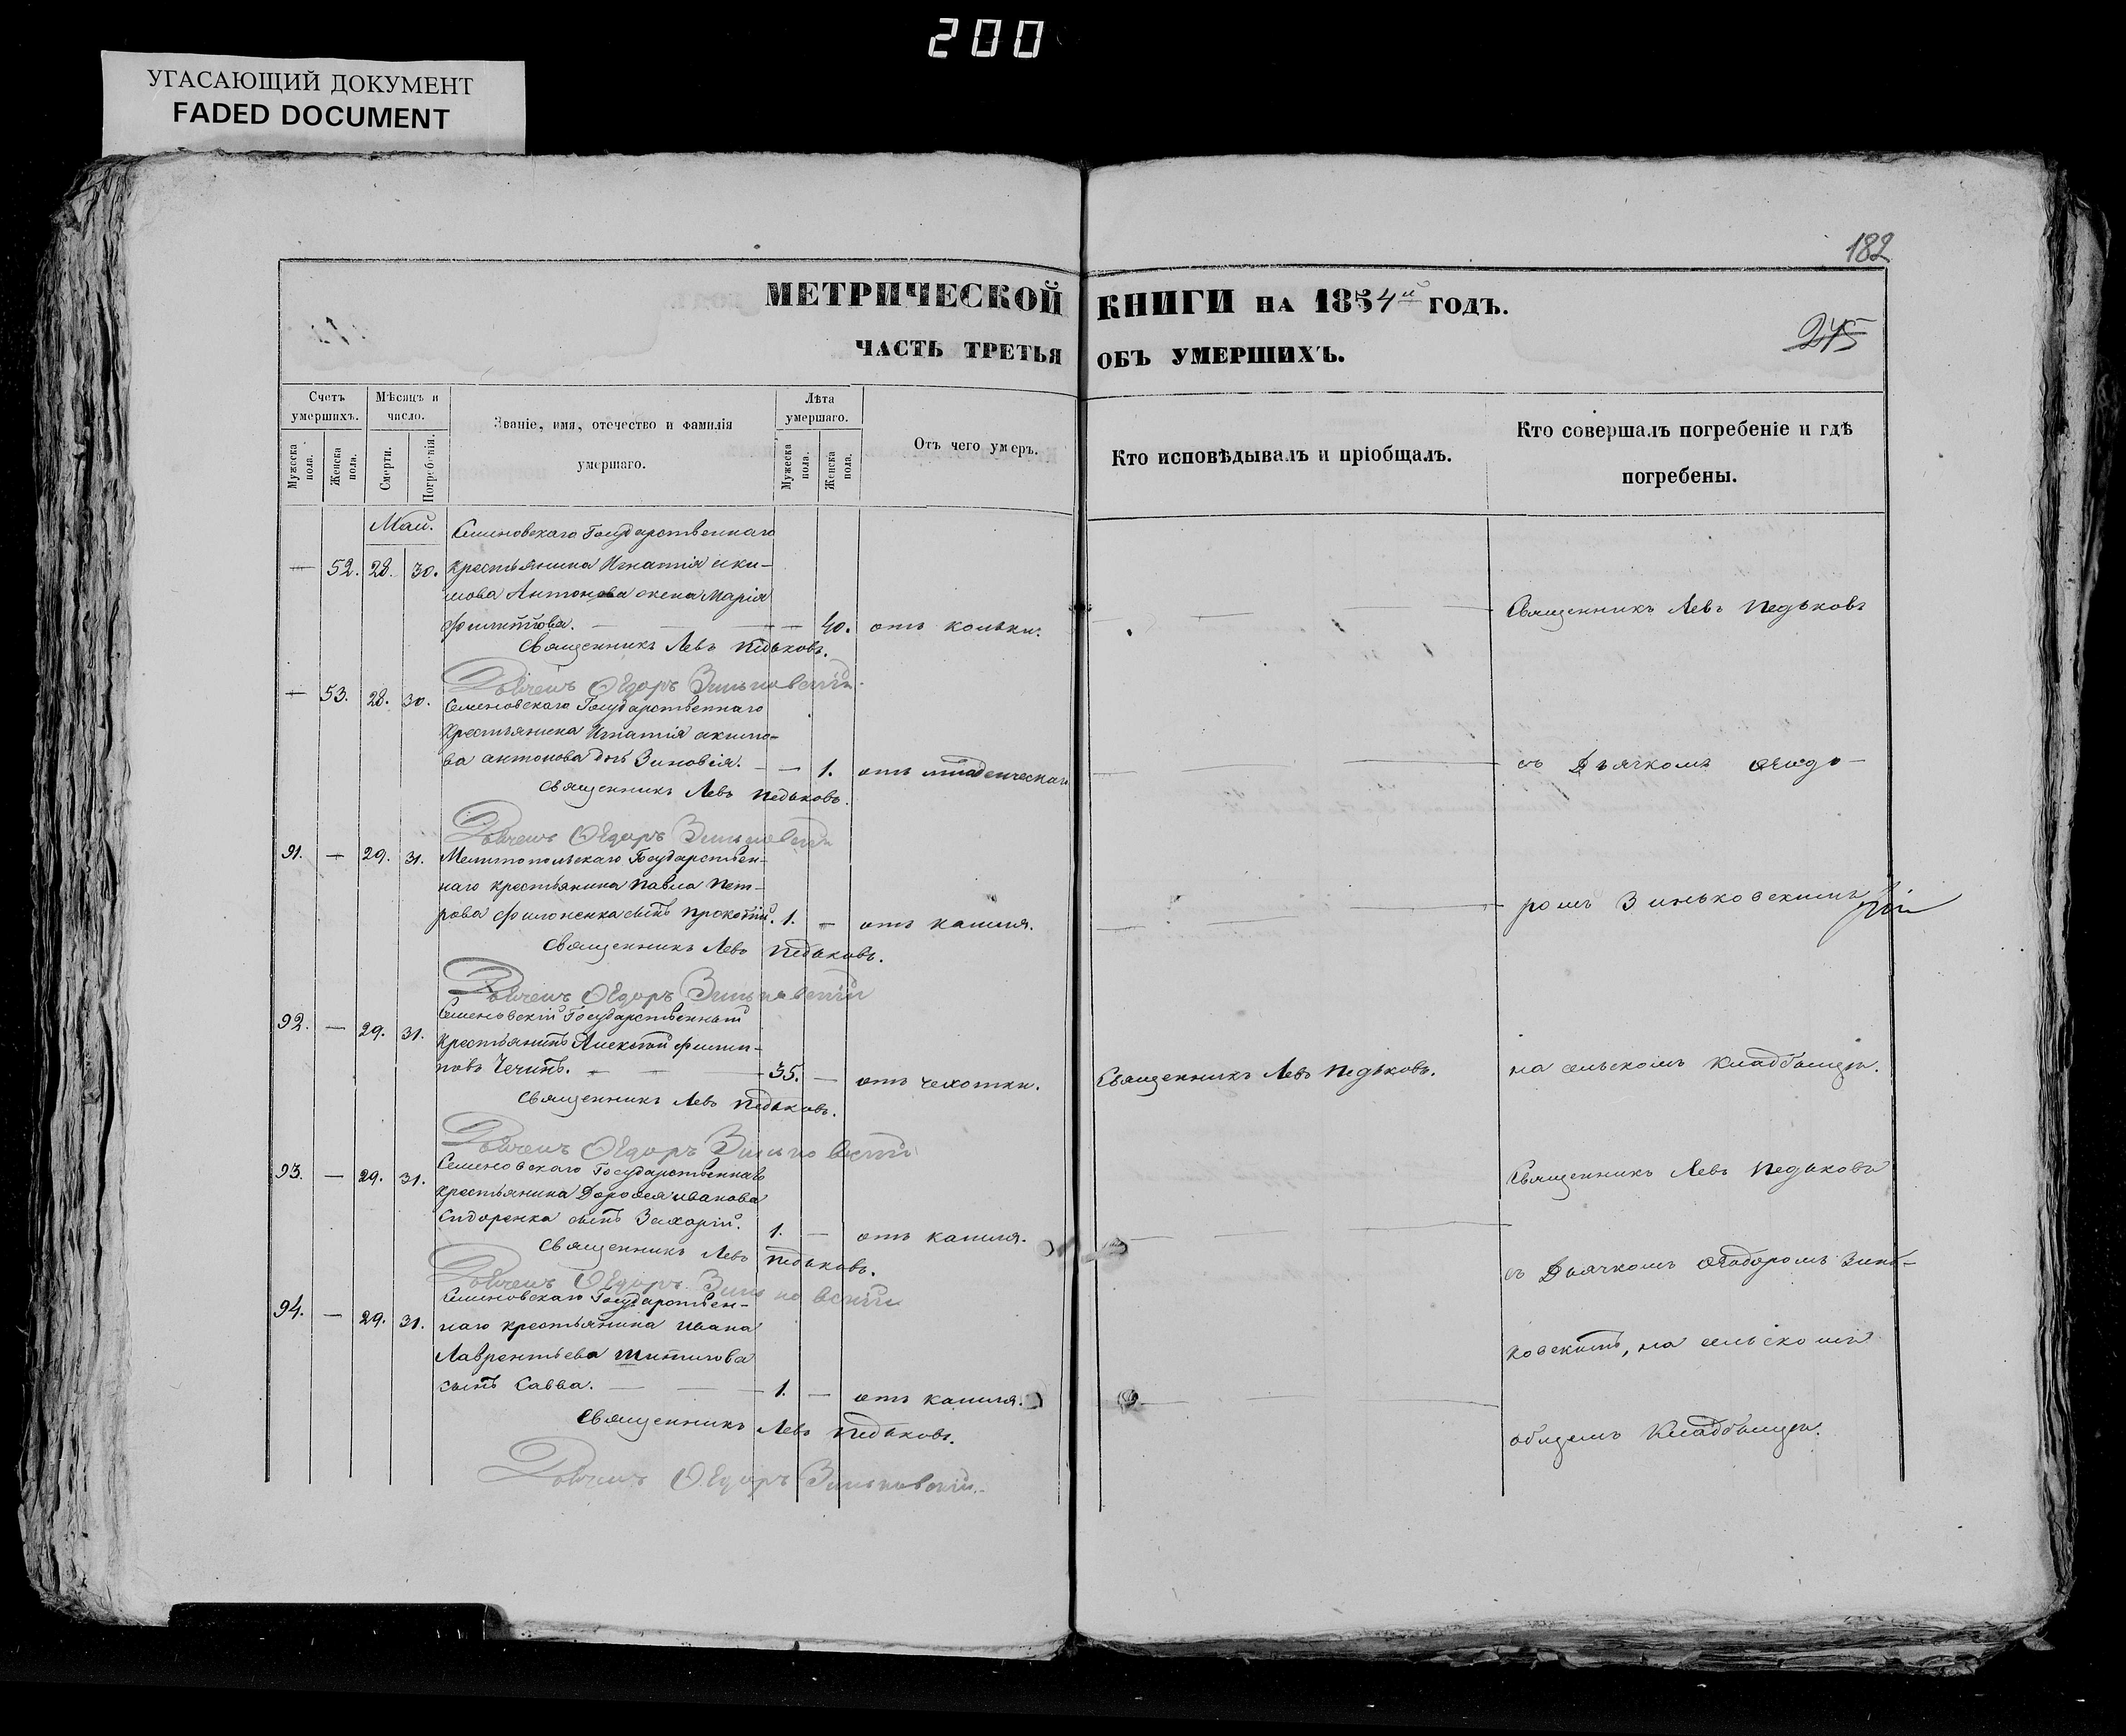 200
УГАСАЮЩИЙ ДОКУМЕНТ
FADED DOCUMENT
182
МЕТРИЧЕСКОЙ КНИГИ НА 1854й ГОДЪ.
245
ЧАСТЬ ТРЕТЬЯ ОБЪ УМЕРШИХЪ.
Счетъ умершихъ.
Мѣсяцъ и число.
Званіе, имя, отечество и фамилія умершаго.
Лѣта умершаго.
Отъ чего умеръ.
Кто исповѣдывалъ и пріобщалъ.
Кто совершалъ погребеніе и гдѣ погребены.
Мужеска пола.
Женска пола.
Смерти.
Погребенія.
Мужеска пола.
Женска пола.
Маій.
Семеновскаго Государственнаго
— 52. 28. 30. крестьянина Игнатія аки-
мова Антонова жена Марія
Филиппова. — — 40. отъ колики.
Священникъ Левъ Педьковъ
Священникъ Левъ Педьковъ.
Дьячекъ Ѳедоръ Зиньковскій.
— 53. 28. 30. Семеновскаго Государственнаго
крестьянина Игнатія акимо-
ва антонова дочь Зиновія. — — 1. отъ младенческой
съ Дьячкомъ Ѳеодо-
Священникъ Левъ Педьковъ.
Дьячекъ Ѳедоръ Зиньковскій
91. — 29. 31. Мелитопольскаго Государствен-
наго крестьянина Павла Пет-
рова Филоненка сынъ Прокопій. 1. — отъ кашля.
ромъ Зиньковскимъ
Священникъ Левъ Педьковъ.
Дьячекъ Ѳедоръ Зиньковскій
92. — 29. 31. Семеновскій Государственный
крестьянинъ Алексѣй Филип-
повъ Чечинъ. — — 35. — отъ чехотки.
Священникъ Левъ Педьковъ.
на сельскомъ кладбищѣ.
Священникъ Левъ Педьковъ.
Дьячекъ Ѳедоръ Зиньковскій
93. — 29. 31. Семеновскаго Государственнаго
крестьянина Дорофея иванова
Сидоренка сынъ Захарій. 1. — отъ кашля.
Священникъ Левъ Педьковъ
Священникъ Левъ Педьковъ.
Дьячекъ Ѳедоръ Зиньковскій
съ Дьячкомъ Ѳеодоромъ Зинь-
94. — 29. 31. Семеновскаго Государствен-
наго крестьянина Ивана
Лаврентьева Шипилова
сынъ Савва. — — 1. — отъ кашля.
ковскимъ, на сельскомъ
общемъ кладбищѣ.
Священникъ Левъ Педьковъ.
Дьячекъ Ѳедоръ Зиньковскій.